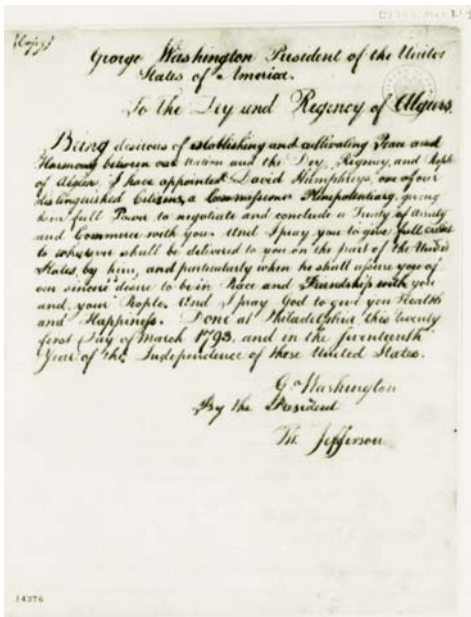 (Copy)
George Washington President of the United
States of America.
To the Dey and Regency of Algiers.
Being desirous of establishing and cultivating Peace and
Harmony between our Nation and the Dey, Regency, and People
of Algiers, I have appointed David Humphreys, one of our
distinguished Citizens, a Commissioner Plenipotentiary, giving
him full Power to negotiate and conclude a Treaty of Amity
and Commerce with you. And I pray you to give full credit
to whatever shall be delivered to you on the part of the United
States, by him, and particularly when he shall assure you of
our sincere desire to be in Peace and Friendship with you
and your People. And I pray God to give you Health
and Happiness. Done at Philadelphia this twenty
first Day of March 1793, and in the seventeenth
Year of the Independence of these United States.
Go Washington
By the President
Th: Jefferson
14376